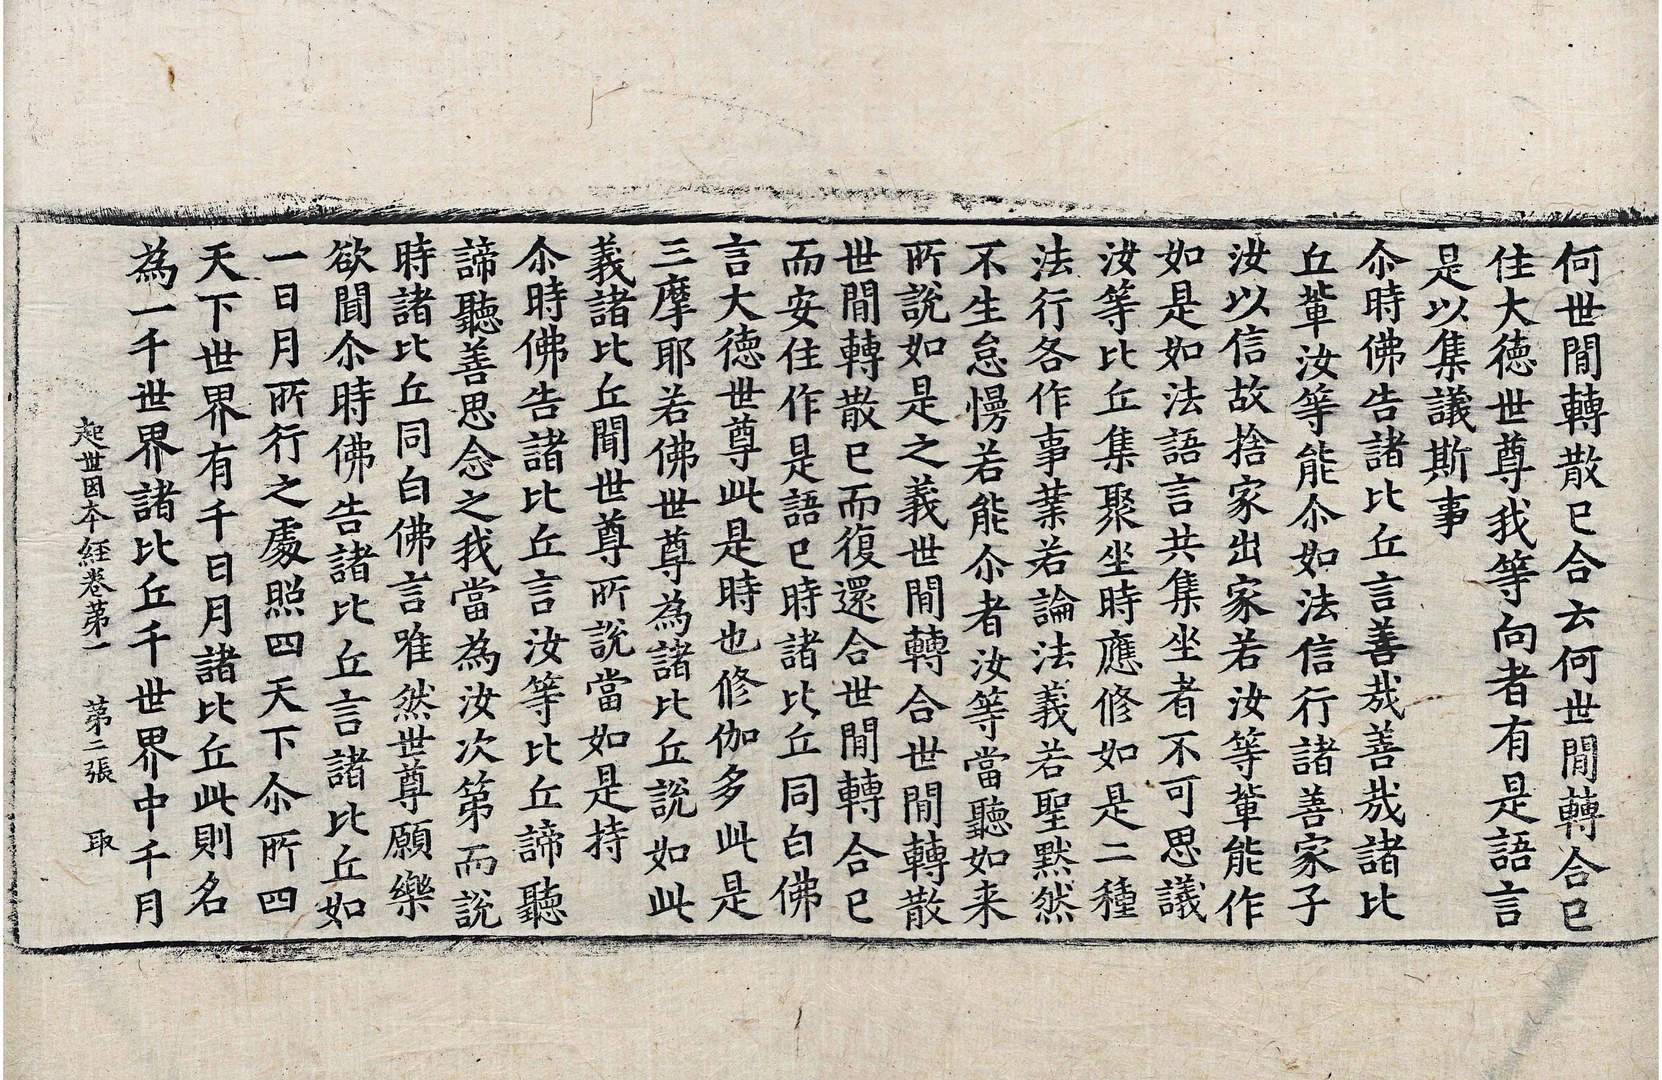 何世閒轉散已合云何世閒轉合已
住大徳世尊我等向者有是語言
是以集議斯事
尒時佛告諸比丘言善㢤善㢤諸比
丘軰汝等能尒如法信行諸善家子
汝以信故捨家出家若汝等軰能作
如是如法語言共集坐者不可思議
汝等比丘集聚坐時應修如是二種
法行各作事業若論法義若聖默然
不生怠慢若能尒者汝等當聽如来
所說如是之義世閒轉合世閒轉散
世閒轉散已而復還合世閒轉合已
而安住作是語已時諸比丘同白佛
言大徳世尊此是時也修伽多此是
三摩耶若佛世尊為諸比丘說如此
義諸比丘聞世尊所說當如是持
尒時佛告諸比丘言汝等比丘諦聽
諦聽善思念之我當為汝次第而說
時諸比丘同白佛言唯然世尊願樂
欲聞尒時佛告諸比丘言諸比丘如
一日月所行之處照四天下尒所四
天下世界有千日月諸比丘此則名
為一千世界諸比丘千世界中千月
起世因本經卷第一 第二張 取